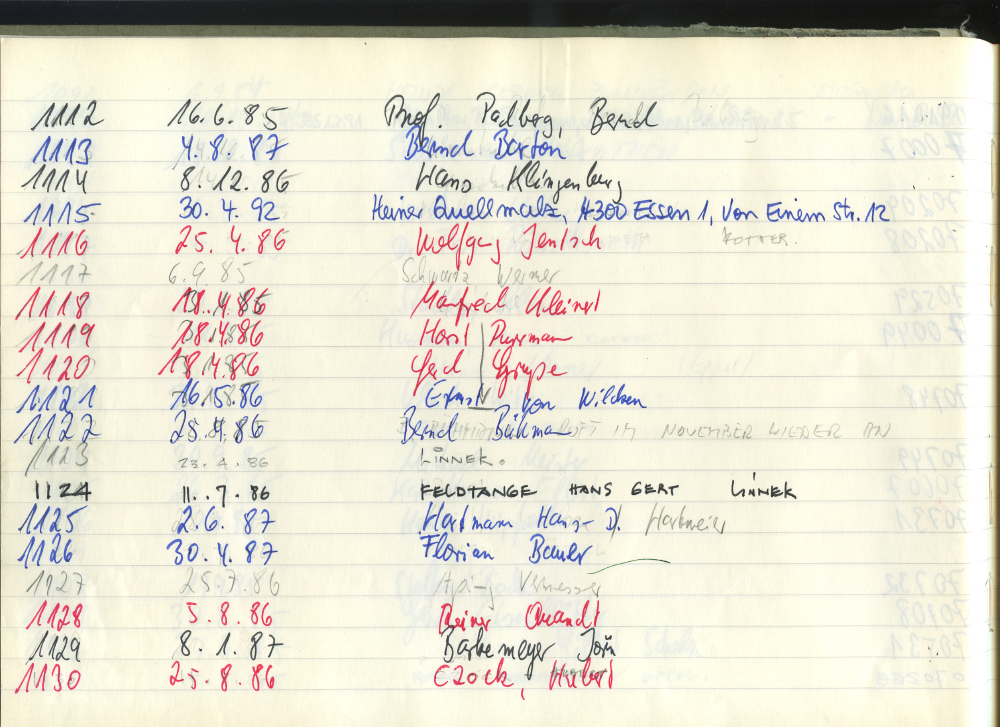 1112 16.6.85 Prof. Padberg, Bernd
1113 4.8.87 Bernd Barton
1114 8.12.86 Hans Klingenberg
1115 30.4.92 Heiner Quellmalz, 4300 Essen 1, Von Einem Str. 12
1116 25.4.86 Wolfgang Jentsch
1117 6.9.85 Schwarz Werner
1118 18.4.86 Manfred Kleinert
1119 18.4.86 Horst
1120 18.4.86 Gerd Gripe
1121 16.5.86 Ernst von Wilcken
1122 25.4.86 Bernd IM NOVEMBER WIEDER AN
1123 23.4.86 LINNEK.
1124 11.7.86 FELDTANGE HANS GERT LINNEK
1125 2.6.87 Hartmann Hans-D. Hartmeier
1126 30.4.87 Florian Bauer
1127 25.7.86
1128 5.8.86 Reiner Quandt
1129 8.1.87 Barbemeyer Jörn
1130 25.8.86 CZOCK, Hubert